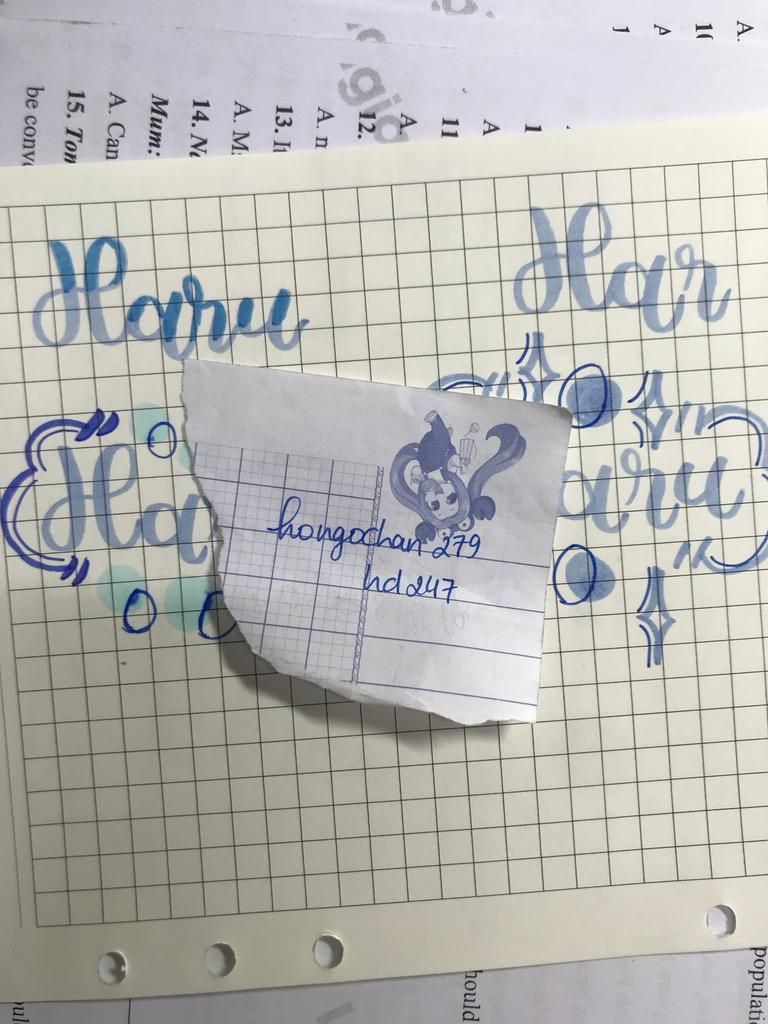 A.
10
A
1
A.
12.
11
A
1
A. n
13. I
A. M
14. N
Mum:
A. Can
15. Tom
be conv
Haru
Har
Ha
aru
hongochan279
hd247
hould
populati